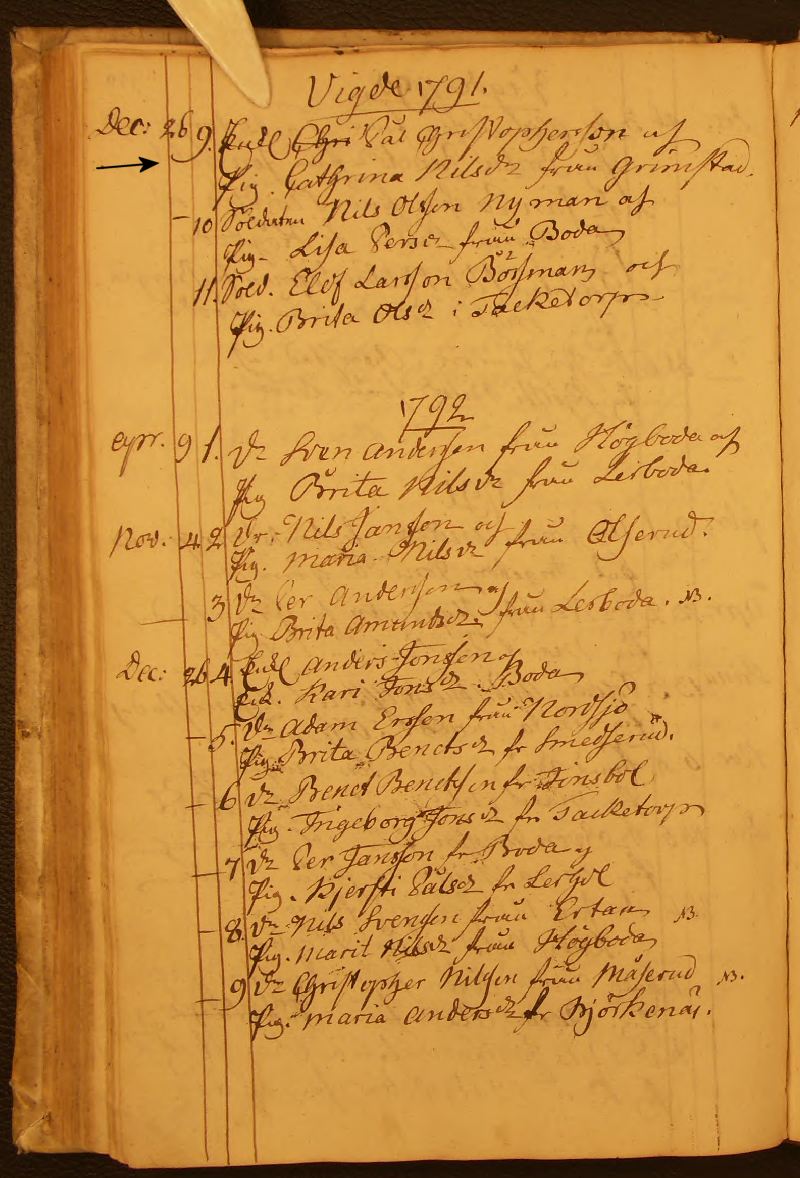 Vigde 1791.
Dec: 26 9. Enkl Chri Pål Christophersson och
Pig. Cathrina Nilsdr från Grimstad.
– 10 Soldaten Nils Olsson Nyman och
Pig. Lisa Persdr från Boda
11. Sold. Elof Larsson Bössman och
Pig. Brita Olsdr i Tacketorp
1792
Apr. 9 1. Dr Sven Andersen från Högboda och
Pig Brita Nilsdr från Lerboda.
Nov: 4 2 Dr. Nils Jansson och
Pig. Maria Nilsdr från Olserud.
– 3 Dr Per Andersson och
Pig Brita Amundsdr. från Lerboda. NB.
Dec: 26 4 Enkl Anders Jonsson och
Kari Jonsdr. Boda
– 5. Dr Adam Ersson från Nordsjö
Pig. Brita Benctsdr fr Smedserud.
– 6 Dr Benct Benctsson fr Finsbol
Pig. Ingeborg Jonsdr fr Tacketorp
– 7 Dr Per Jansson fr Boda
Pig. Kjersti Pålsdr fr Lerhol
– 8. Dr Nils Svensson från Ertan NB.
Pig. Marit Nilsdr från Högboda
– 9 Dr Christopher Nilsson från Måserud NB.
Pig. Maria Andersdr fr Björkenäs.